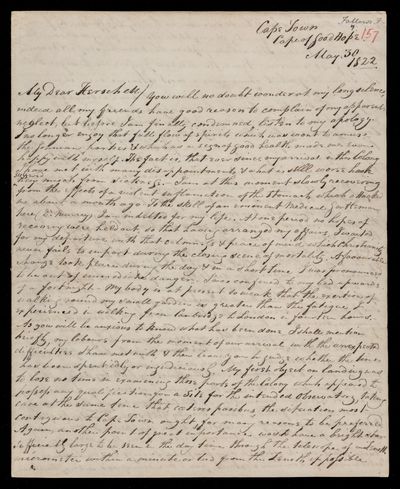 Fallows F.
157
Cape Town
Cape of Good Hope
May 30
1822
My Dear Herschel/ You will no doubt wonder at my long silence,
indeed all my friends have good reason to complain of my apparent
neglect, but before I am finally condemned listen to my apology.
I no longer enjoy that full flow of spirits which was wont to amuse
the Johnian parties & which a reign of good health made me even
happy with myself. The fact is, that ever since my arrival in this Colony
I have met with many disappointments & what is still worse have
been myself in sickness. I am at this moment slowly recovering
from the effects of a violent inflammation of the stomach which attacked
me about a month ago. To the skill of an eminent Medical gentleman
here (Dr Murray) I am indebted for my life. At one period no hopes of
recovery were held out so that having arranged my affairs, I waited
for my departure with that calmness & peace of mind which
never fails to support during the closing scene of mortality. A favourable
change took place during the day & in a short time I was pronounced
to be out of immediate danger. I was confined to my bed upwards
of a fortnight. My body is at present so weak, that the exertion of
walking round my small garden is greater than the fatigue I
experienced in walking from Cambridge to London in fourteen hours.
As you will be anxious to know what has been done I shall mention
briefly my labours from the moment of our arrival, with the unexpected
difficulties I have met with & then leave you to judge whether the time
has been spent idly or injudiciously. My first object on landing was
to lose no time in examining those parts of the Colony which appeared to
possess an equal pretension for a Site for the intended Observatory, taking
care at the same time that cæteris paribus the situation most
contiguous to Cape Town ought for many reasons to be preferred
Again, another point of great importance was to have a bright star
sufficiently large to be seen in the day time through the telescope of a Zenith
micrometer within a minute or two from the Zenith, if possible